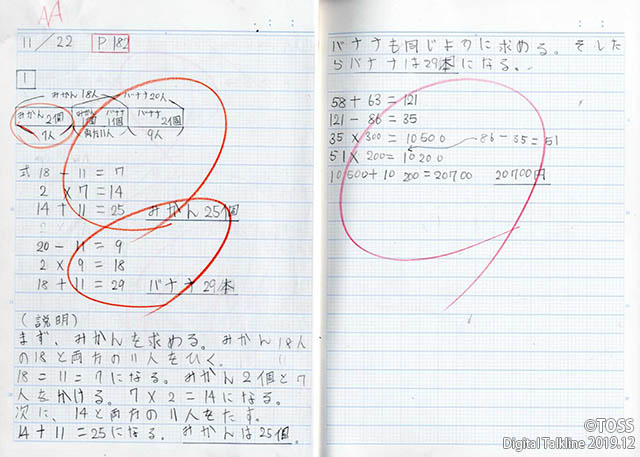 AA
11/22 P182
1
みかん18人 バナナ20人
みかん2個 みかん1個 バナナ1個 バナナ2個
7人 両方11人 9人
式 18 − 11 = 7
2 × 7 = 14
14 + 11 = 25 みかん25個
20 − 11 = 9
2 × 9 = 18
18 + 11 = 29 バナナ29本
(説明)
まず、みかんを求める。みかん18人
の18と両方の11人をひく。
18 = 11 = 7になる。みかん2個と7
人をかける。7×2=14になる。
次に、14と両方の11人をたす。
14+11=25になる。みかんは25個。
バナナも同じように求める。そした
らバナナは29本になる。
58 + 63 = 121
121 − 86 = 35
35 × 300 = 10500 86 − 35 = 51
51 × 200 = 10200
10500 + 10200 = 20700 20700円
©TOSS
Digital Talkline 2019.12